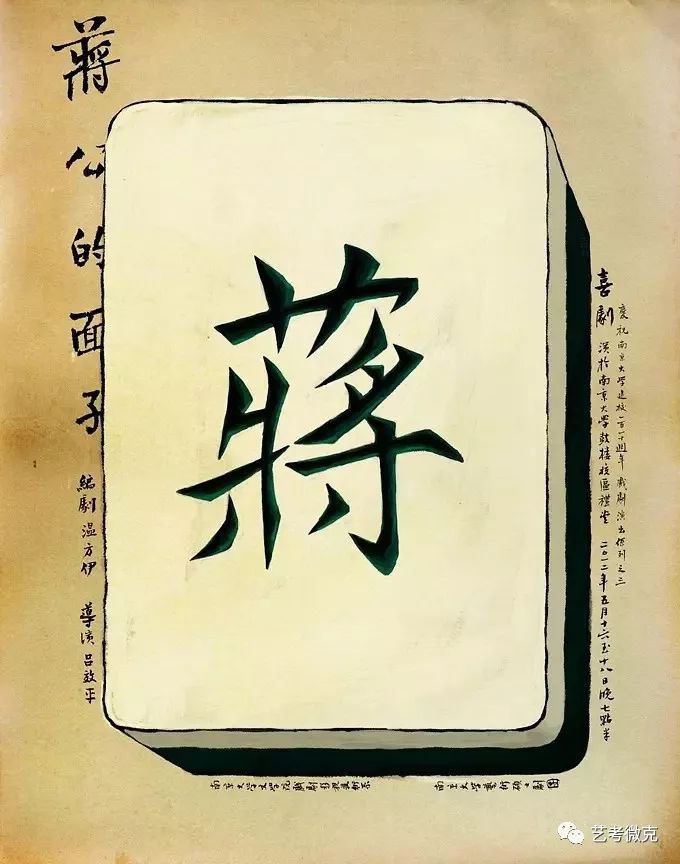 蔣公的面子
編劇 温方伊 導演 吕效平
蔣
慶祝南京大學建校一百一十週年 戲劇演出係列之三
喜劇 演於南京大學鼓樓校區禮堂 二〇一二年五月十六至十八日晚七點半
南京大學文學院戲劇影視藝術系 南京大學藝術碩士劇團
艺考微克